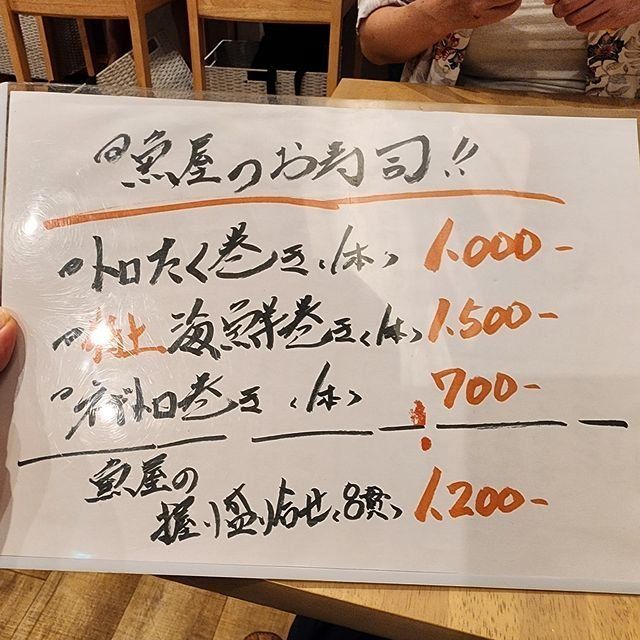 魚屋のお寿司!!
トロたく巻き〈1本〉 1.000-
特上海鮮巻き〈1本〉 1.500-
ネギトロ巻き〈1本〉 700-
魚屋の
握り盛り合せ〈8貫〉 1.200-